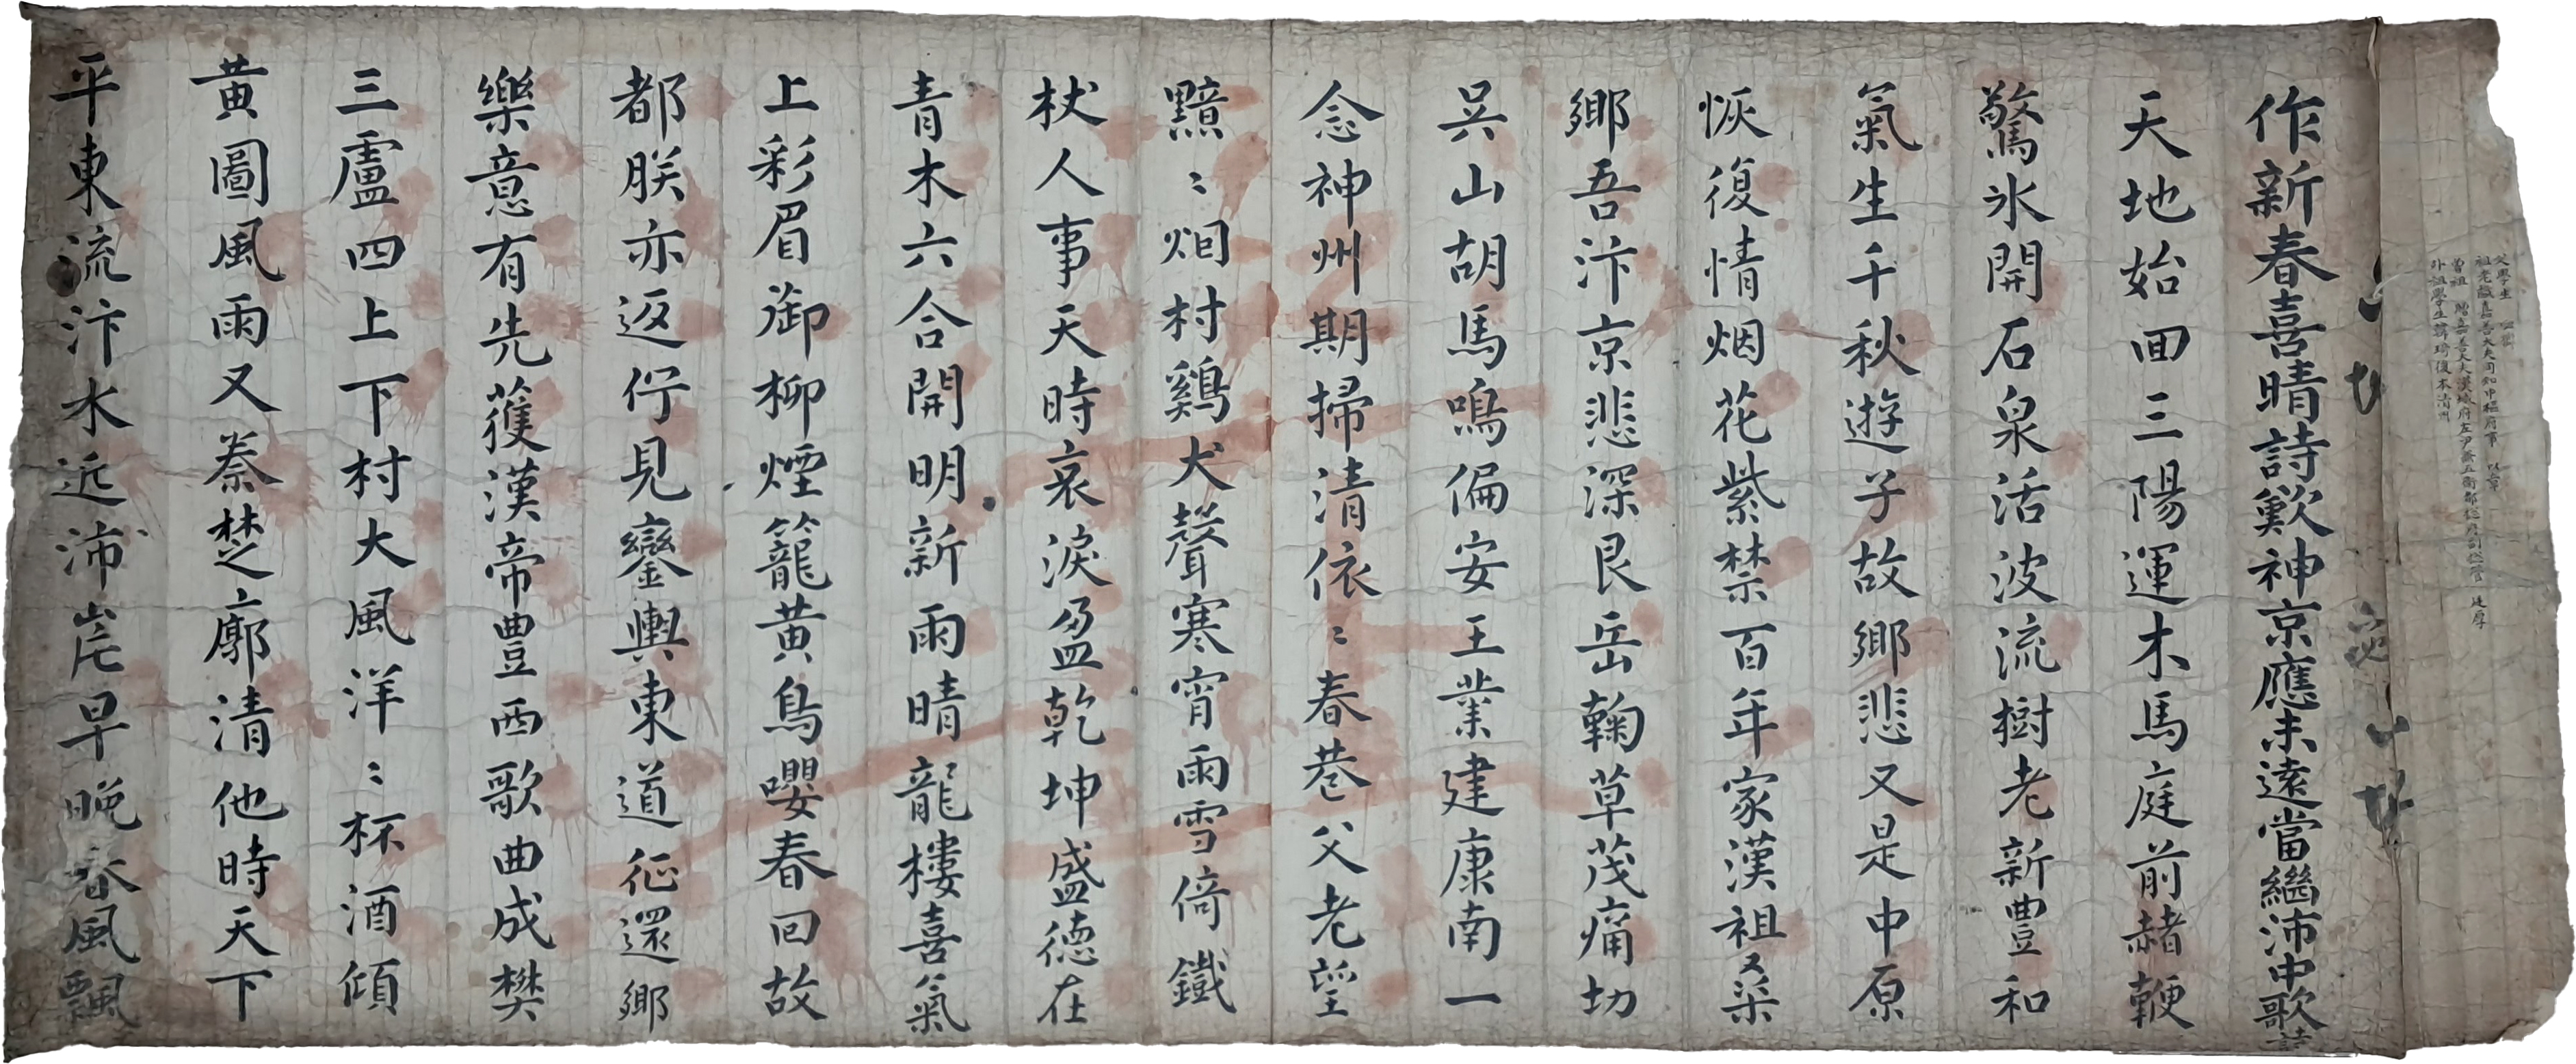 父學生
祖老職嘉善大夫同知中樞府事
曾祖 贈嘉善大夫漢城府左尹兼五衛都摠府副摠管
外祖學生韓琦復本清州
作新春喜晴詩歎神京應未遠當繼沛中歌詩
天地始回三陽運木馬庭前赭鞭
驚氷開石泉活波流樹老新豊和
氣生千秋遊子故鄉悲又是中原
恢復情烟花紫禁百年家漢祖桑
鄉吾汴京悲深艮岳鞠草茂痛切
吳山胡馬鳴偏安王業建康南一
念神州期掃清依〻春巷父老望
黯〻烟村鷄犬聲寒宵雨雪倚鐵
杖人事天時哀淚盈乾坤盛德在
青木六合開明新雨晴龍樓喜氣
上彩眉御柳煙籠黃鳥嚶春回故
都朕亦返佇見鑾輿東道征還鄉
樂意有先蹤漢帝豊西歌曲成樊
三盧四上下村大風洋〻杯酒傾
黃圖風雨又秦楚廓清他時天下
平東流汴水近沛嵳早晚春風飄